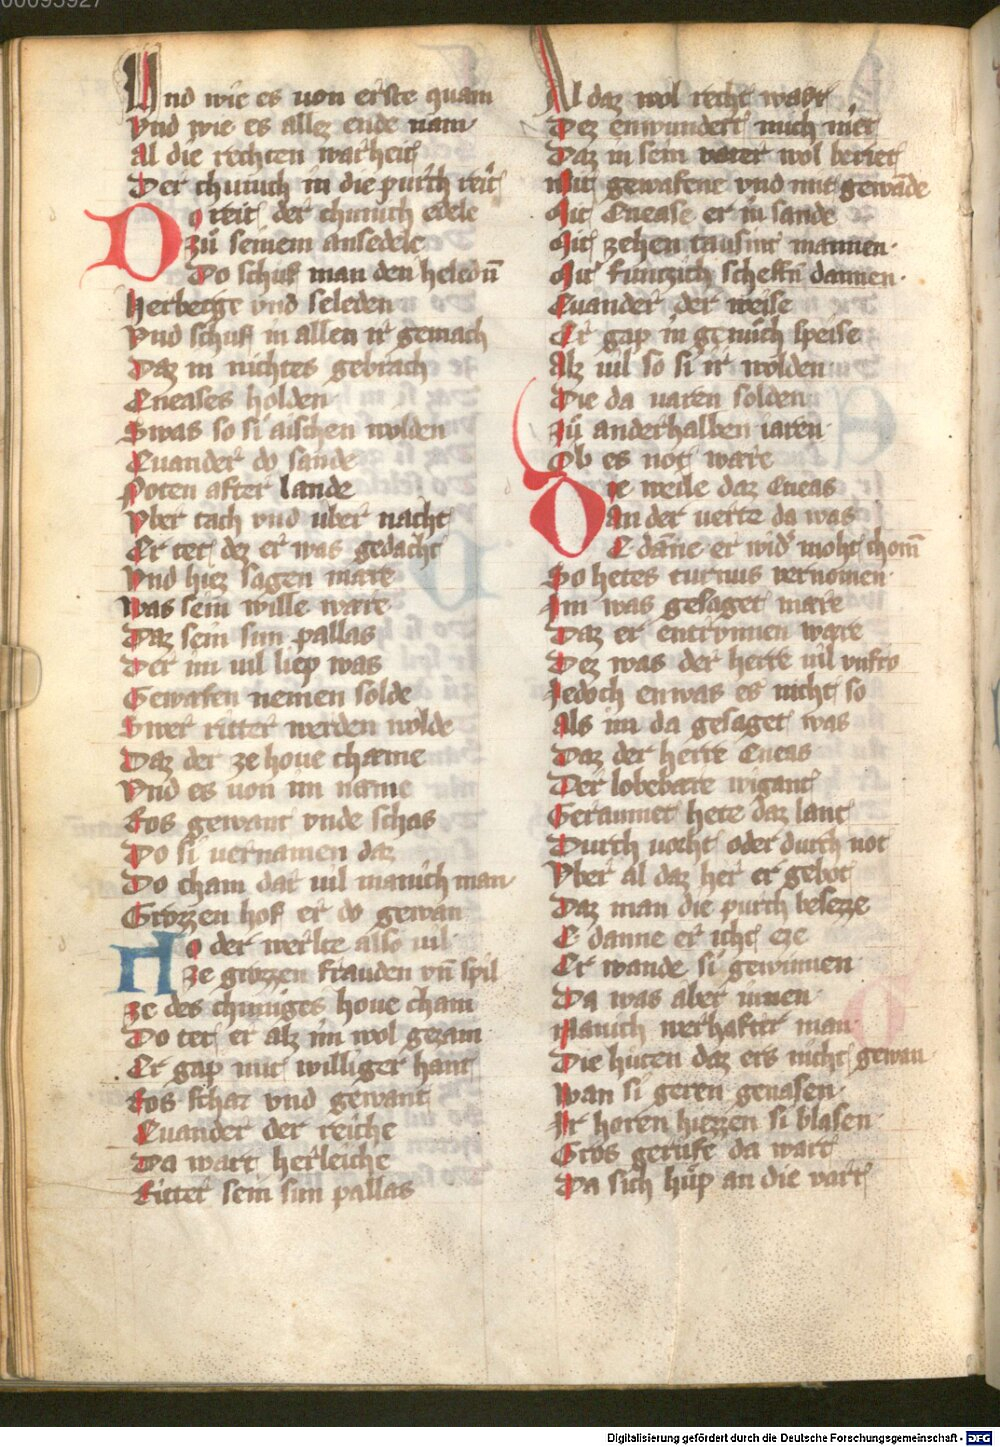 00095927
Und wie es uon erste quam
Vnd wie es allez ende nam·
Al die rechten warheit
Der chunich in die purch reit
Do reit der chunich edele
Zů seinem ansedele
Do schuf man den heledn̄
Herberge vnd seleden
Vnd schuf in allen ir gemach
Daz in nichtes gebrach
Eneases holden
Swas so si aischen wolden
Euander do sande
Poten after lande
Vber tach vnd uber nacht
Er tet dez er was gedacht
Vnd hiez sagen mare
Was sein wille ware
Daz sein sun pallas
Der im uil liep was
Gewafen nemen solde
Swer ritter werden wolde
Daz der ze houe chæme
Vnd es uon im næme
Ros gewant vnde schas
Do si uernamen daz
Do cham dar uil manich man·
Grozzen hof er do gewan
No der werlte also uil·
Ze grozzen frauden vn̄ spil
ze des chuniges houe cham
Do tet er alz im wol gezam
Er gap mit williger hant
Ros schar vnd gewant
Euander der reiche
Da wart herleiche
Ritter sein sun pallas
Al daz wol recht wart
Dez enwundert mich niet
Daz in sein vater wol beriet
Mit gewafene vnd mit gewāde
Mit Enease er in sande
Mit zehen tausint mannen·
Mit funtzich scheffn̄ dannen·
Euander der weise
Er gap in genuch speise
Alz uil so si ir wolden
Die da uaren solden
Zů anderhalben iaren·
Ob es not ware
Die weile daz Eneas
an der uerte da was
E dāne er wid' moht chom̄
Do hetes turnus vernomen·
Im was gesaget mare
Daz er entrunnen ware
Dez was der herre uil vnfro
Jedoch enwas es nicht so
Als im da gesaget was
Daz der herre Eneas
Der lobebare wigant
Geraumet hete daz lant
Durch uorht oder durch not
Vber al daz her er gebot
Daz man die purch besezze
E danne er icht eze
Er wande si gewinnen
Da was aber innen·
Manich werhafter man
Die huten daz ers nicht gewan·
Wan si geren genasen·
Ir horen hiezzen si blasen
Groz gerufe da wart
Da sich hůp an die vart
Digitalisierung gefördert durch die Deutsche Forschungsgemeinschaft - DFG